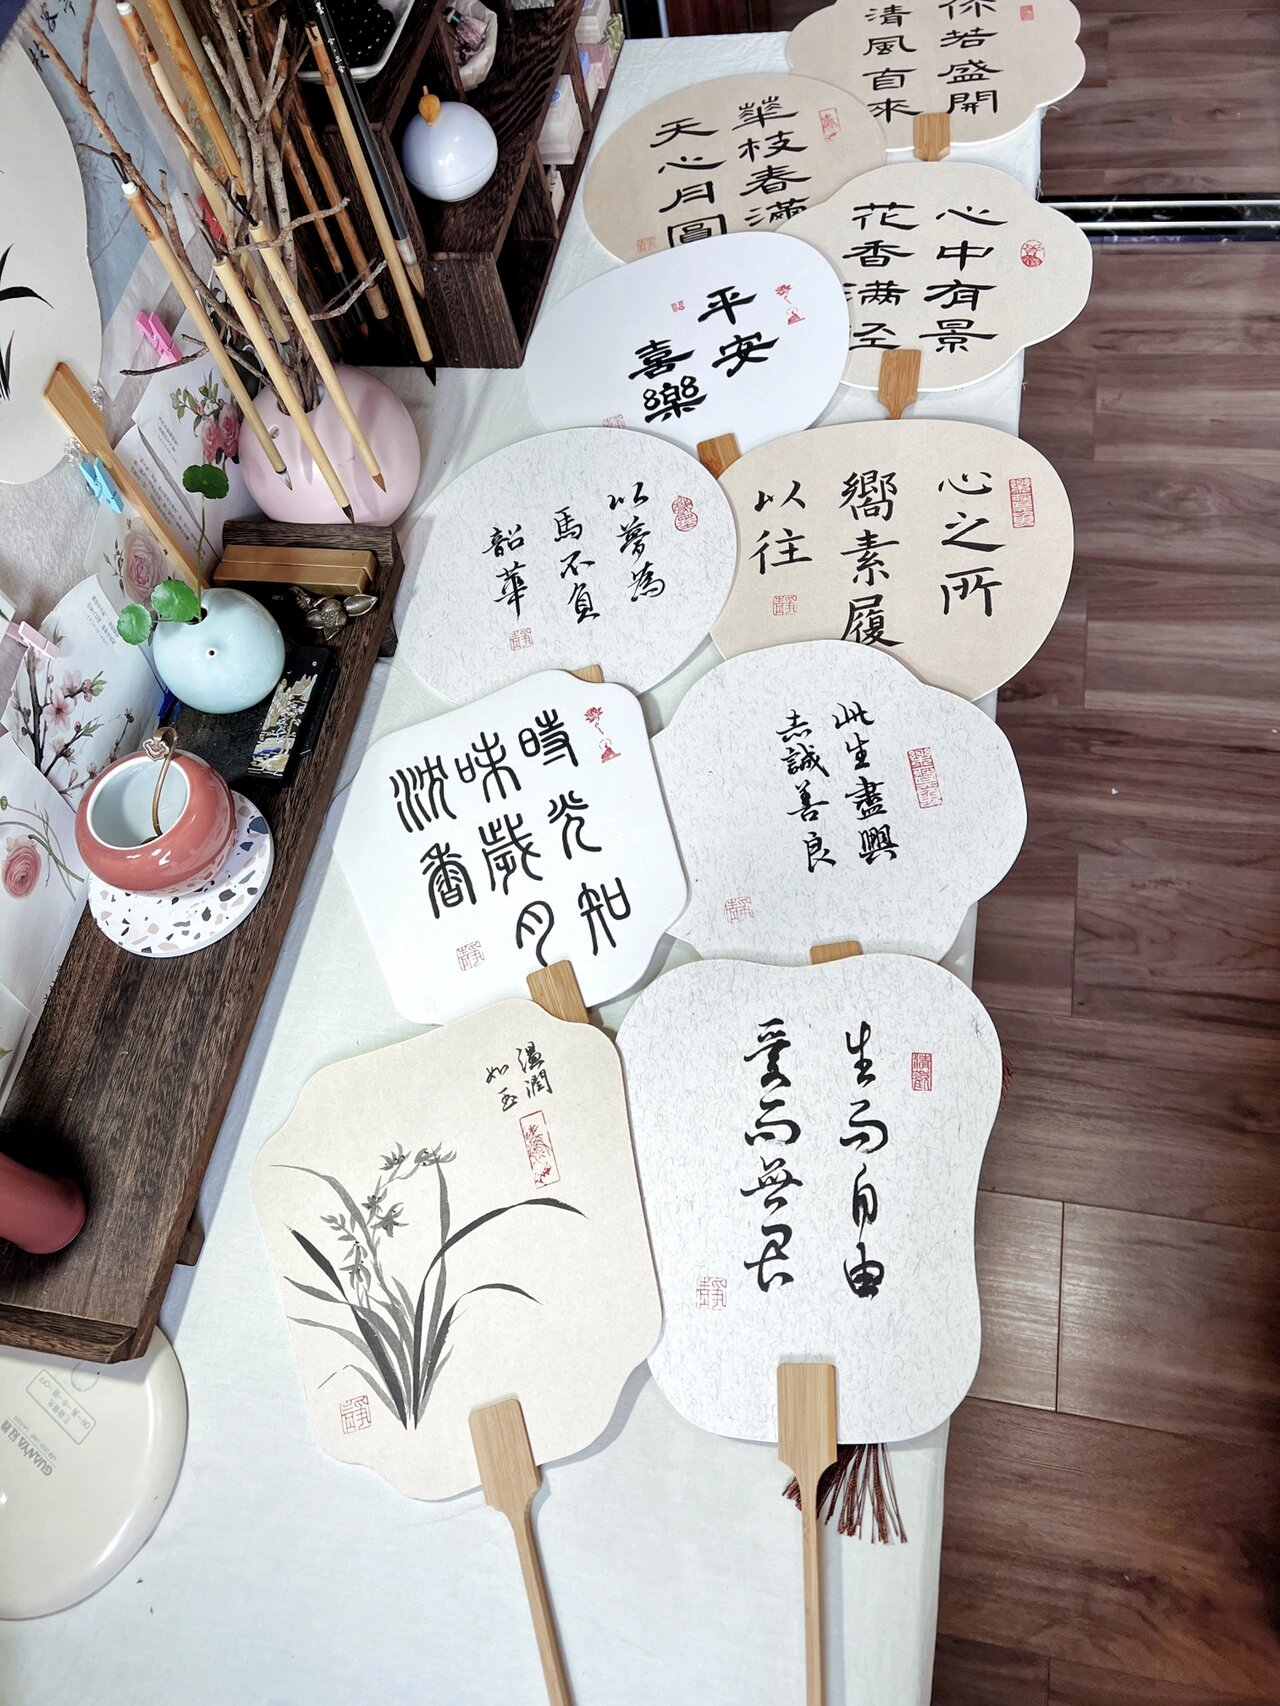 你若盛開
清風自來
華枝春滿
天心月圓
心中有景
花香满径
平安
喜樂
心之所
嚮素履
以往
以夢為
馬不負
韶華
此生盡興
赤誠善良
時光知
味歲月
沈香
生而自由
愛而無畏
溫潤
如玉
靜
GUANYA冠雅